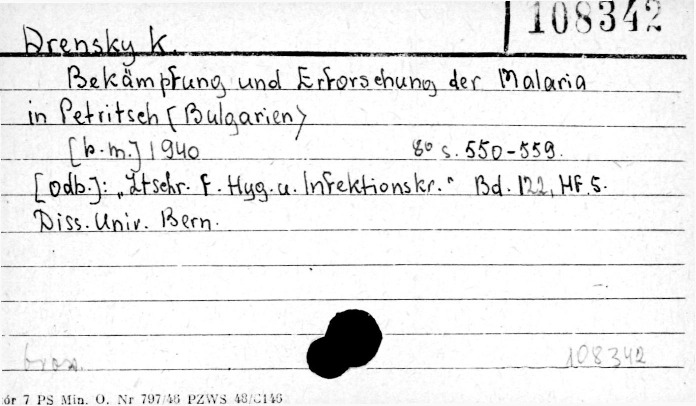 108342
Drensky K.
Bekämpfung und Erforschung der Malaria
in Petritsch (Bulgarien)
[b.m.] 1940 8° s. 550-559.
[odb.]: „Ztschr. f. Hyg. u. Infektionskr." Bd. 122, Hf. 5.
Diss. Univ. Bern.
brosz. 108342
ór 7 PS Min. O. Nr 797/46 PZWS 48/3146